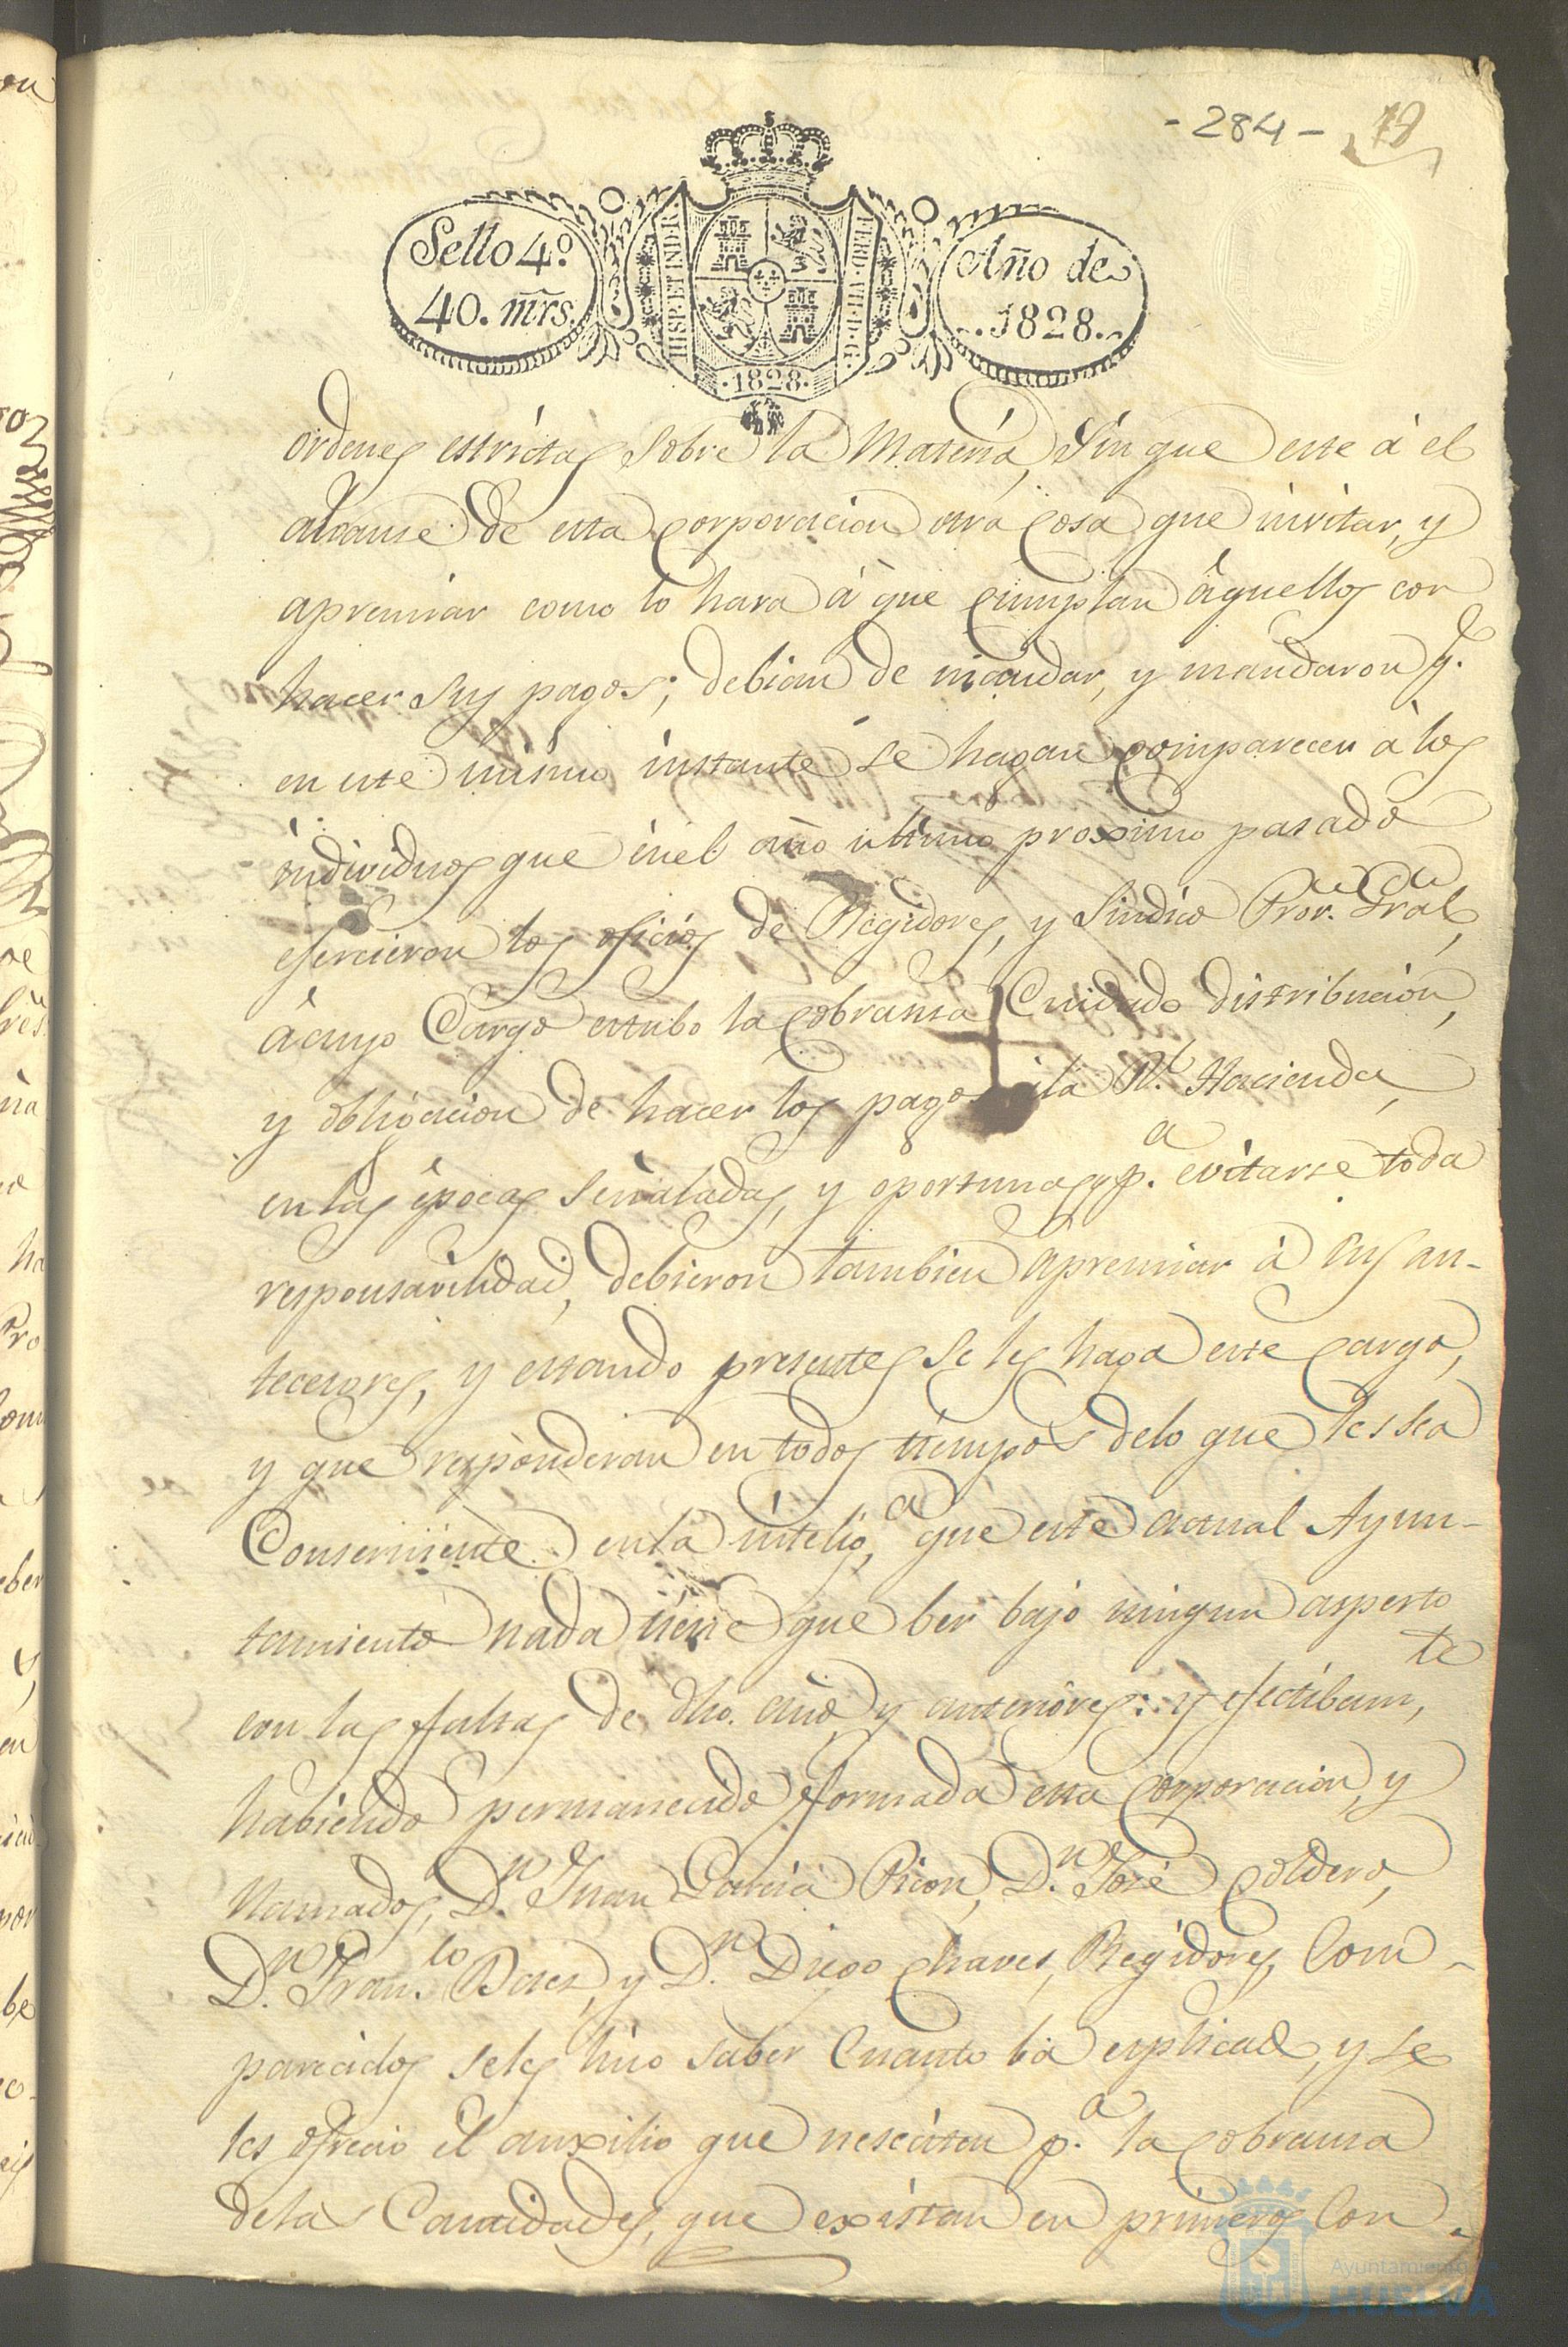 - 284 - 19
Sello 4.º
40. mrs.
HISP. ET IND. R.
FERD. VII. D. G.
· 1828 ·
Año de
1828.
ordenes estrictas sobre la Materia, sin que este á el
alcanse de esta corporacion otra cosa que invitar, y
apremiar como lo hara á que cumplan aquellos con
hacer sus pagos; debian de mandar, y mandaron q.e
en este mismo instante se hagan comparecer á los
individuos que en el año ultimo proximo pasado
ejercieron los oficios de Regidores, y Sindico Pror. Gral,
á cuyo Cargo estubo la cobransa Cuidado distribucion,
y obligacion de hacer los pagos á la R.l Hacienda,
en las épocas señaladas, y oportunas, y p.a evitarse toda
responsavilidad, debieron tambien apremiar á sus an-
tecesores, y estando presentes se les haga este cargo,
y que responderan en todos tiempos delo que les sea
Conserniente en la intelig.a que este actual Ayun-
tamiento nada tiene que ber bajo ningun aspecto
con las faltas de dho. año, y anteriores: y efectibam,te
habiendo permanecido formada esta corporacion, y
llamados, D.n Juan Garcia Picon, D.n José Coldero,
D.n Fran.co Baez, y D.n Diego Chaves, Regidores, Com-
parecidos seles hiso saber Cuanto ba esplicad, y se
les ofrecio el auxilio que nesesiten p.a la cobransa
delas Cantidades, que existan en primeros Con-
Ayuntamiento
HUELVA